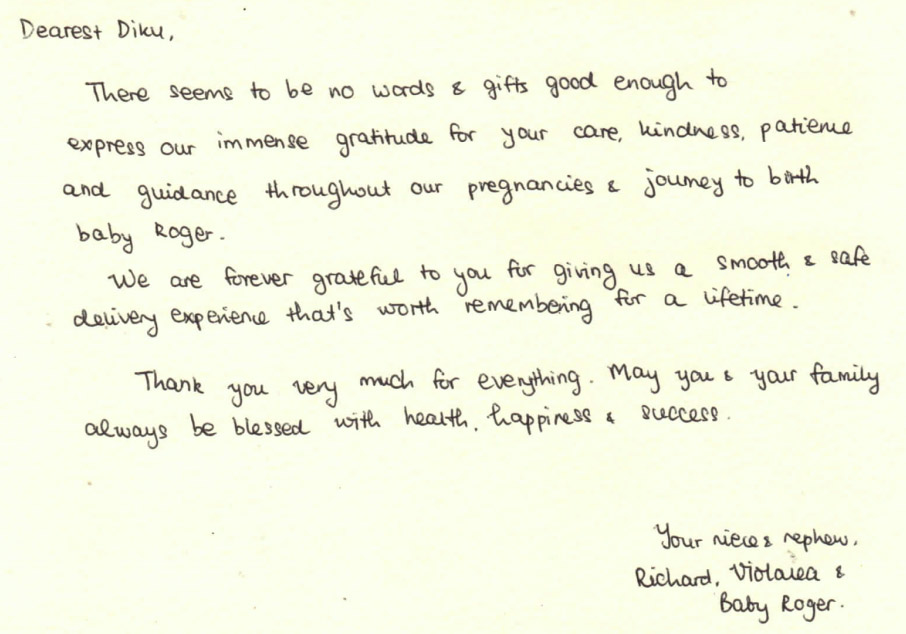 Dearest Diku,
There seems to be no words & gifts good enough to
express our immense gratitude for your care, kindness, patience
and guidance throughout our pregnancies & journey to birth
baby Roger.
We are forever grateful to you for giving us a smooth & safe
delivery experience that's worth remembering for a lifetime.
Thank you very much for everything. May you & your family
always be blessed with health, happiness & success.
Your niece & nephew,
Richard, &
Baby Roger.